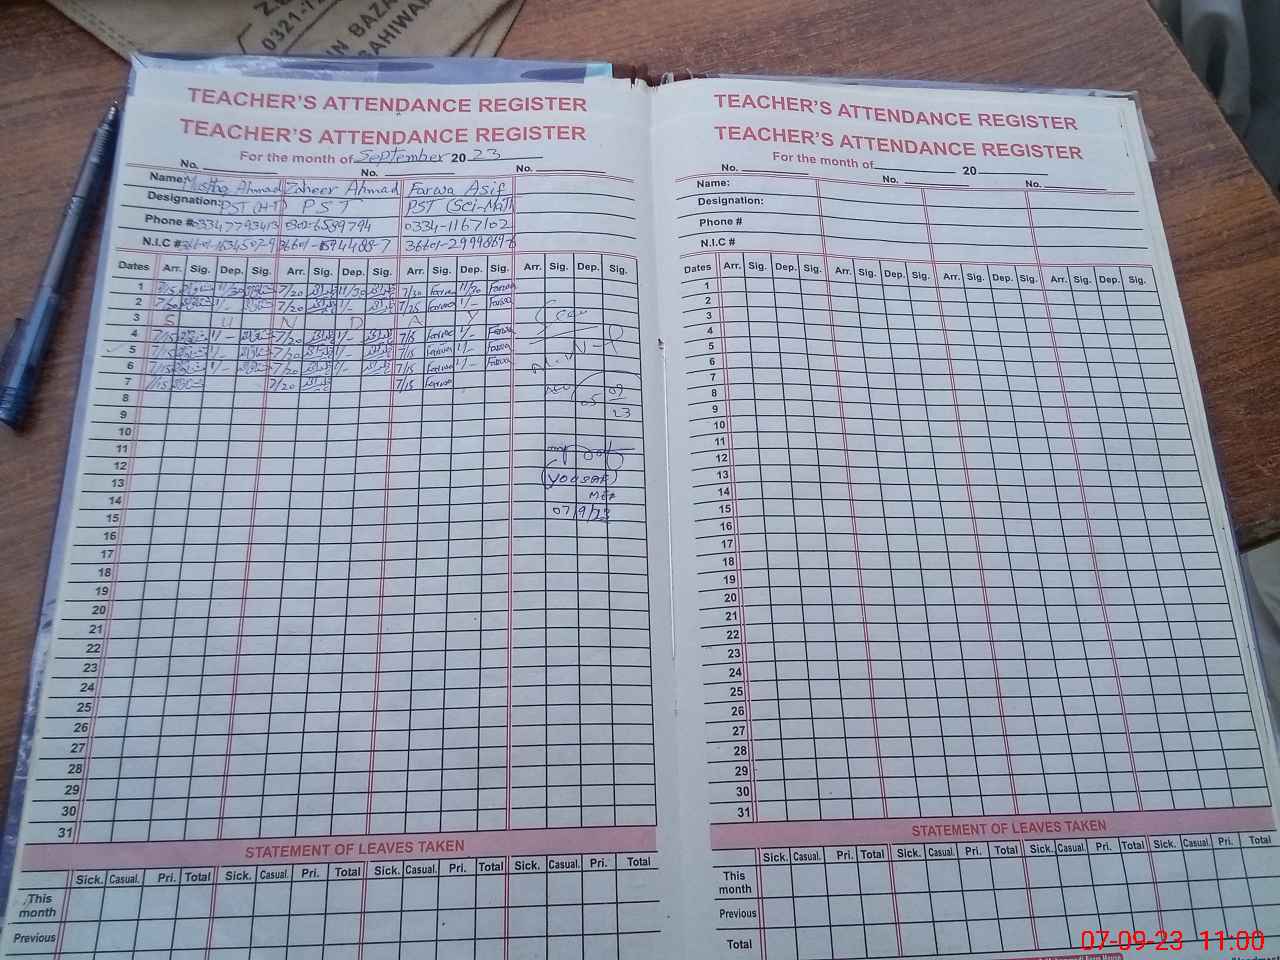 0321-7
N BAZA
AHIWA
TEACHER'S ATTENDANCE REGISTER
TEACHER'S ATTENDANCE REGISTER
For the month of September 20 23
No. No. No.
Name: Ahmad Zaheer Ahmad Farwa Asif
Designation: PST (H-T) PST PST (Sci-Math)
Phone # 03347793413 0302-6589794 0334-1167102
N.I.C #
Dates Arr. Sig. Dep. Sig. Arr. Sig. Dep. Sig. Arr. Sig. Dep. Sig. Arr. Sig. Dep. Sig.
1 7/15 11/30 7/20 11/30 7/20 Farwa 11/30 Farwa
2 7/20 1/- 7/20 1/- 7/25 Farwa 1/- Farwa
3 S U N D A Y
4 7/15 1/- 7/20 1/- 7/15 Farwa 1/- Farwa
5 7/15 1/- 7/20 1/- 7/15 Farwa 1/- Farwa
6 7/15 1/- 7/20 1/- 7/15 Farwa 1/- Farwa
7 7/15 7/20 7/15 Farwa
8
05 09
9
23
10
11
12
13 (yousaf)
14 MEA
15 07/9/23
16
17
18
19
20
21
22
23
24
25
26
27
28
29
30
31
STATEMENT OF LEAVES TAKEN
Sick. Casual. Pri. Total Sick. Casual. Pri. Total Sick. Casual. Pri. Total Sick. Casual. Pri. Total
This month
Previous
TEACHER'S ATTENDANCE REGISTER
TEACHER'S ATTENDANCE REGISTER
For the month of 20
No. No. No.
Name:
Designation:
Phone #
N.I.C #
Dates Arr. Sig. Dep. Sig. Arr. Sig. Dep. Sig. Arr. Sig. Dep. Sig. Arr. Sig. Dep. Sig.
1
2
3
4
5
6
7
8
9
10
11
12
13
14
15
16
17
18
19
20
21
22
23
24
25
26
27
28
29
30
31
STATEMENT OF LEAVES TAKEN
Sick. Casual. Pri. Total Sick. Casual. Pri. Total Sick. Casual. Pri. Total Sick. Casual. Pri. Total
This month
Previous
Total
07-09-23 11:00